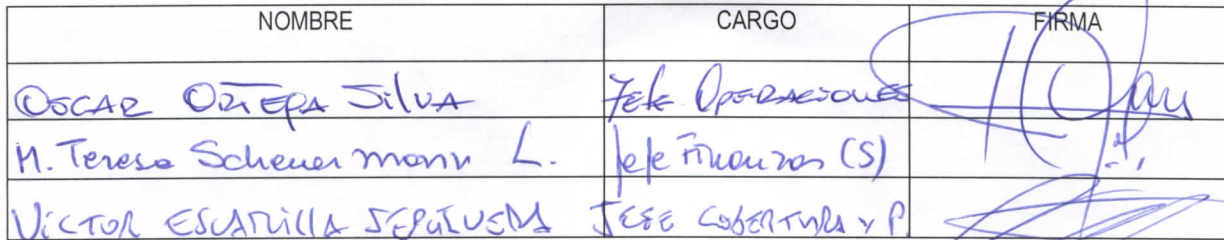 NOMBRE CARGO FIRMA
OSCAR ORTEGA SilVA Jefe OPERACIONES
M. Teresa Scheuermann L. Jefe Finanzas (S)
VíCTOR ESCANILLA SEPÚLVEDA JEFE COBERTURA Y P.